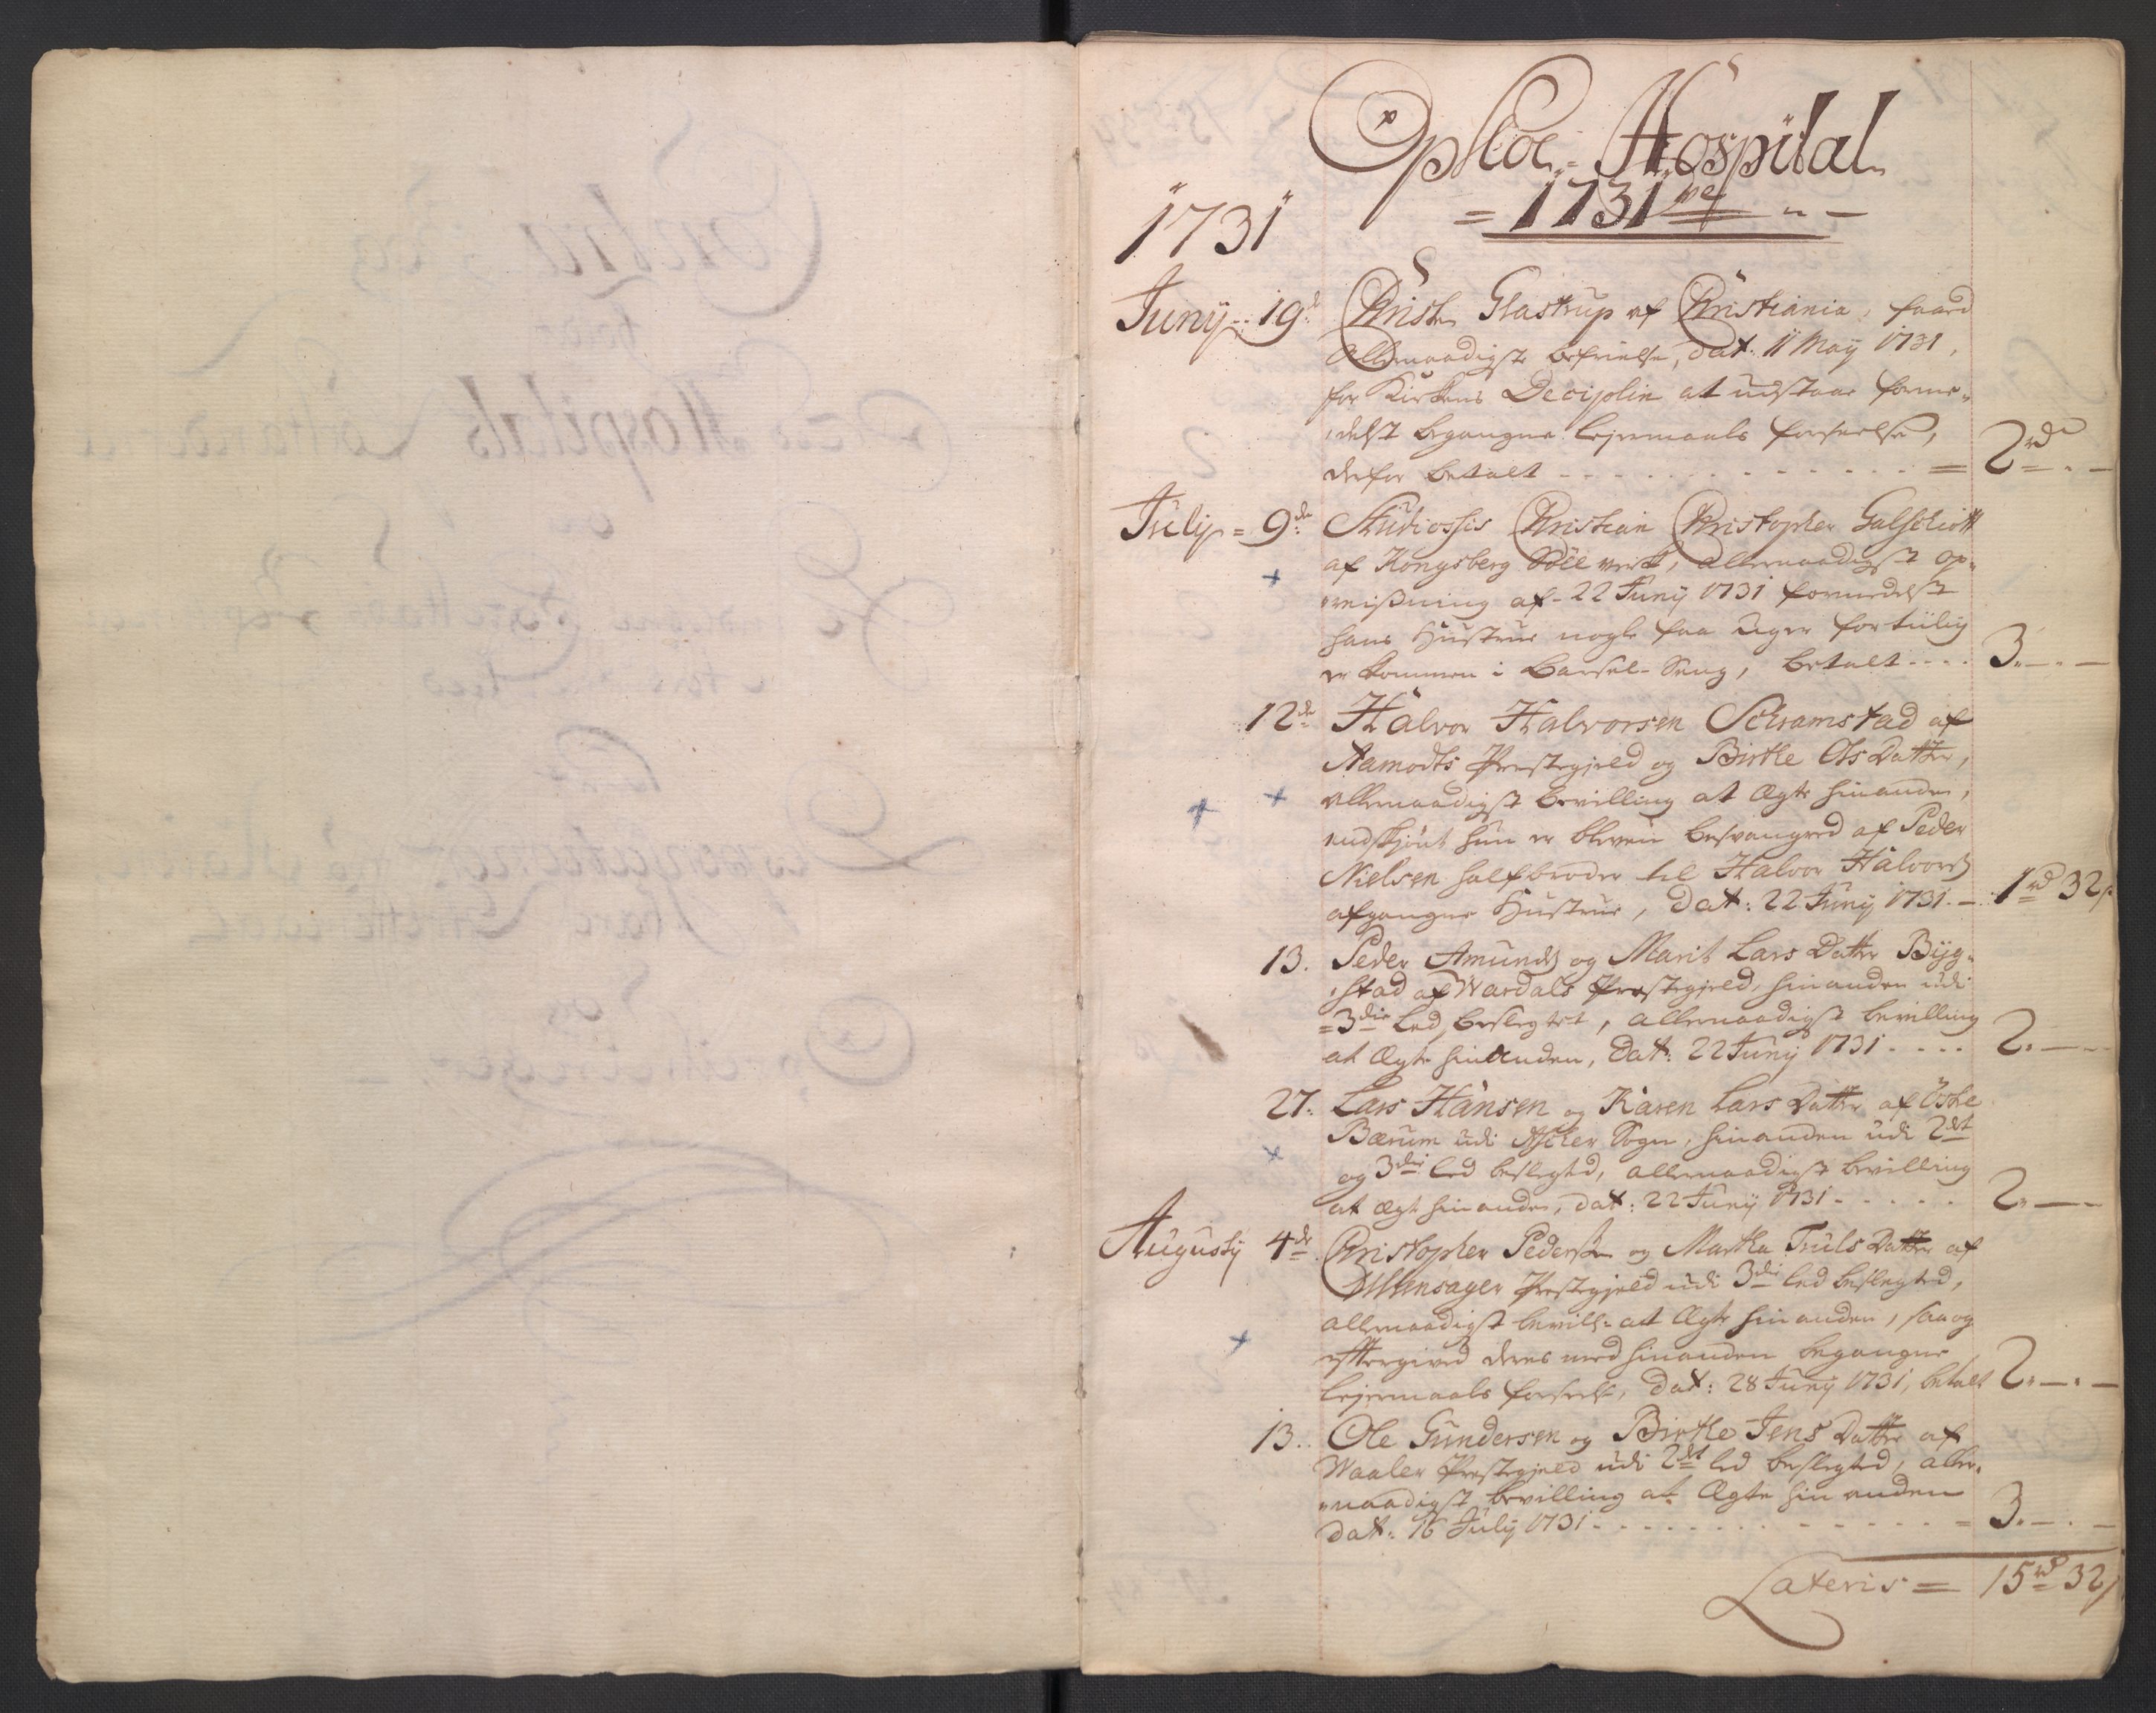 Opsloe Hospital
1731
1731
Junij 19 Christen Glastrup af Christiania, faaed
Allernaadigste befrielse, dat: 11 Maij 1731,
for Kirkens Deciplin at udstaae forme-
delst begangne lejermaals forseelse,
derfor betalt 2 rd
Julij 9de Studiosus Christian Christopher Galschiøtt
af Kongsberg Sølvverk, allernaadigst op-
reisning af 22 Junij 1731 formedelst
hans Hustrue nogle faa Uger for tiilig
er kommen i Barsel-Seng, betalt 3
12de Halvor Halvorsen Schramstad af
Aamodts Prestegjeld og Birthe Ols Datter,
allernaadigst bevilling at ægte hinanden,
endskiønt hun er bleven besvangred af Peder
Nielsen halfbroder til Halvor Halvors
afgangne Hustrue, dat: 22 Junij 1731 1 rd 32 s
13. Peder Amunds og Marit Lars Datter Byg-
stad af Wardals Prestegjeld, hinanden udi
3die Led beslegtet, allernaadigst bevilling
at ægte hinanden, dat: 22 Junij 1731 2
27. Lars Hansen og Karen Lars Datter af Østre
Bærum udi Ascher Sogn, hinanden udi 2det
og 3die led beslegted, allernaadigst bevilling
at ægte hinanden, dat: 22 Junij 1731 2
Augustij 4de Christopher Pedersen og Martha Truls Datter af
Ullensager Prestegjeld udi 3die led beslegted,
allernaadigst bevill: at ægte hinanden, saa og
eftergived deres med hinanden begangne
lejermaals forseelse, dat: 28 Junij 1731, betalt 2
13. Ole Gundersen og Birthe Jens Datter af
Waaler Prestegjeld udi 2det led beslegted, aller-
naadigst bevilling at ægte hinanden
dat: 16 Julij 1731 3
Lateris = 15 rd 32